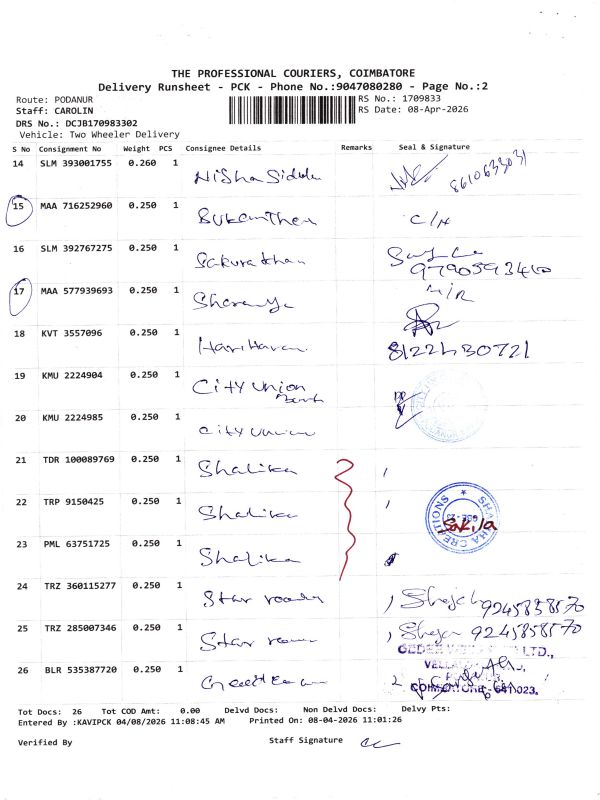 THE PROFESSIONAL COURIERS, COIMBATORE
Delivery Runsheet - PCK - Phone No.:9047080280 - Page No.:2
Route: PODANUR RS No.: 1709833
Staff: CAROLIN RS Date: 08-Apr-2026
DRS No.: DCJB170983302
Vehicle: Two Wheeler Delivery
S No Consignment No Weight PCS Consignee Details Remarks Seal & Signature
14 SLM 393001755 0.260 1 Nisha 8610633031
15 MAA 716252960 0.250 1 C/N
16 SLM 392767275 0.250 1 9790593460
17 MAA 577939693 0.250 1 Sharanya
18 KVT 3557096 0.250 1 Hariharan 8122430721
19 KMU 2224904 0.250 1 City Union Bank
20 KMU 2224985 0.250 1 City Union
21 TDR 100089769 0.250 1 Shalika
22 TRP 9150425 0.250 1 Shalika
23 PML 63751725 0.250 1 Shalika
CREATIONS
Sakila
24 TRZ 360115277 0.250 1 Star 9245858570
25 TRZ 285007346 0.250 1 Star 9245858570
26 BLR 535387720 0.250 1
COIMBATORE - 641 023.
Tot Docs: 26 Tot COD Amt: 0.00 Delvd Docs: Non Delvd Docs: Delvy Pts:
Entered By :KAVIPCK 04/08/2026 11:08:45 AM Printed On: 08-04-2026 11:01:26
Verified By Staff Signature